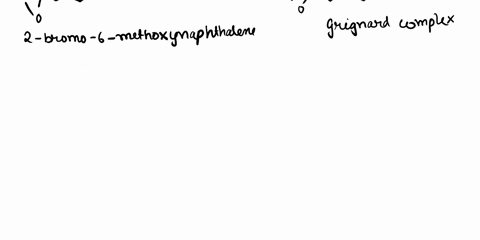 O
O
2-bromo-6-methoxynaphthalene
grignard complex